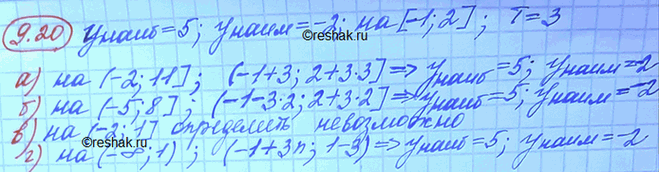 9.20 yнаиб=5; yнаим=-2; на [-1;2]; T=3
©reshak.ru
а) на (-2;11]; (-1+3; 2+3·3] => yнаиб=5; yнаим=-2
б) на (-5;8]; (-1-3·2; 2+3·2] => yнаиб=5; yнаим=-2
в) на (-2;1] определить невозможно
г) на (-∞;1); (-1+3n; 1-3) => yнаиб=5; yнаим=-2
©reshak.ru